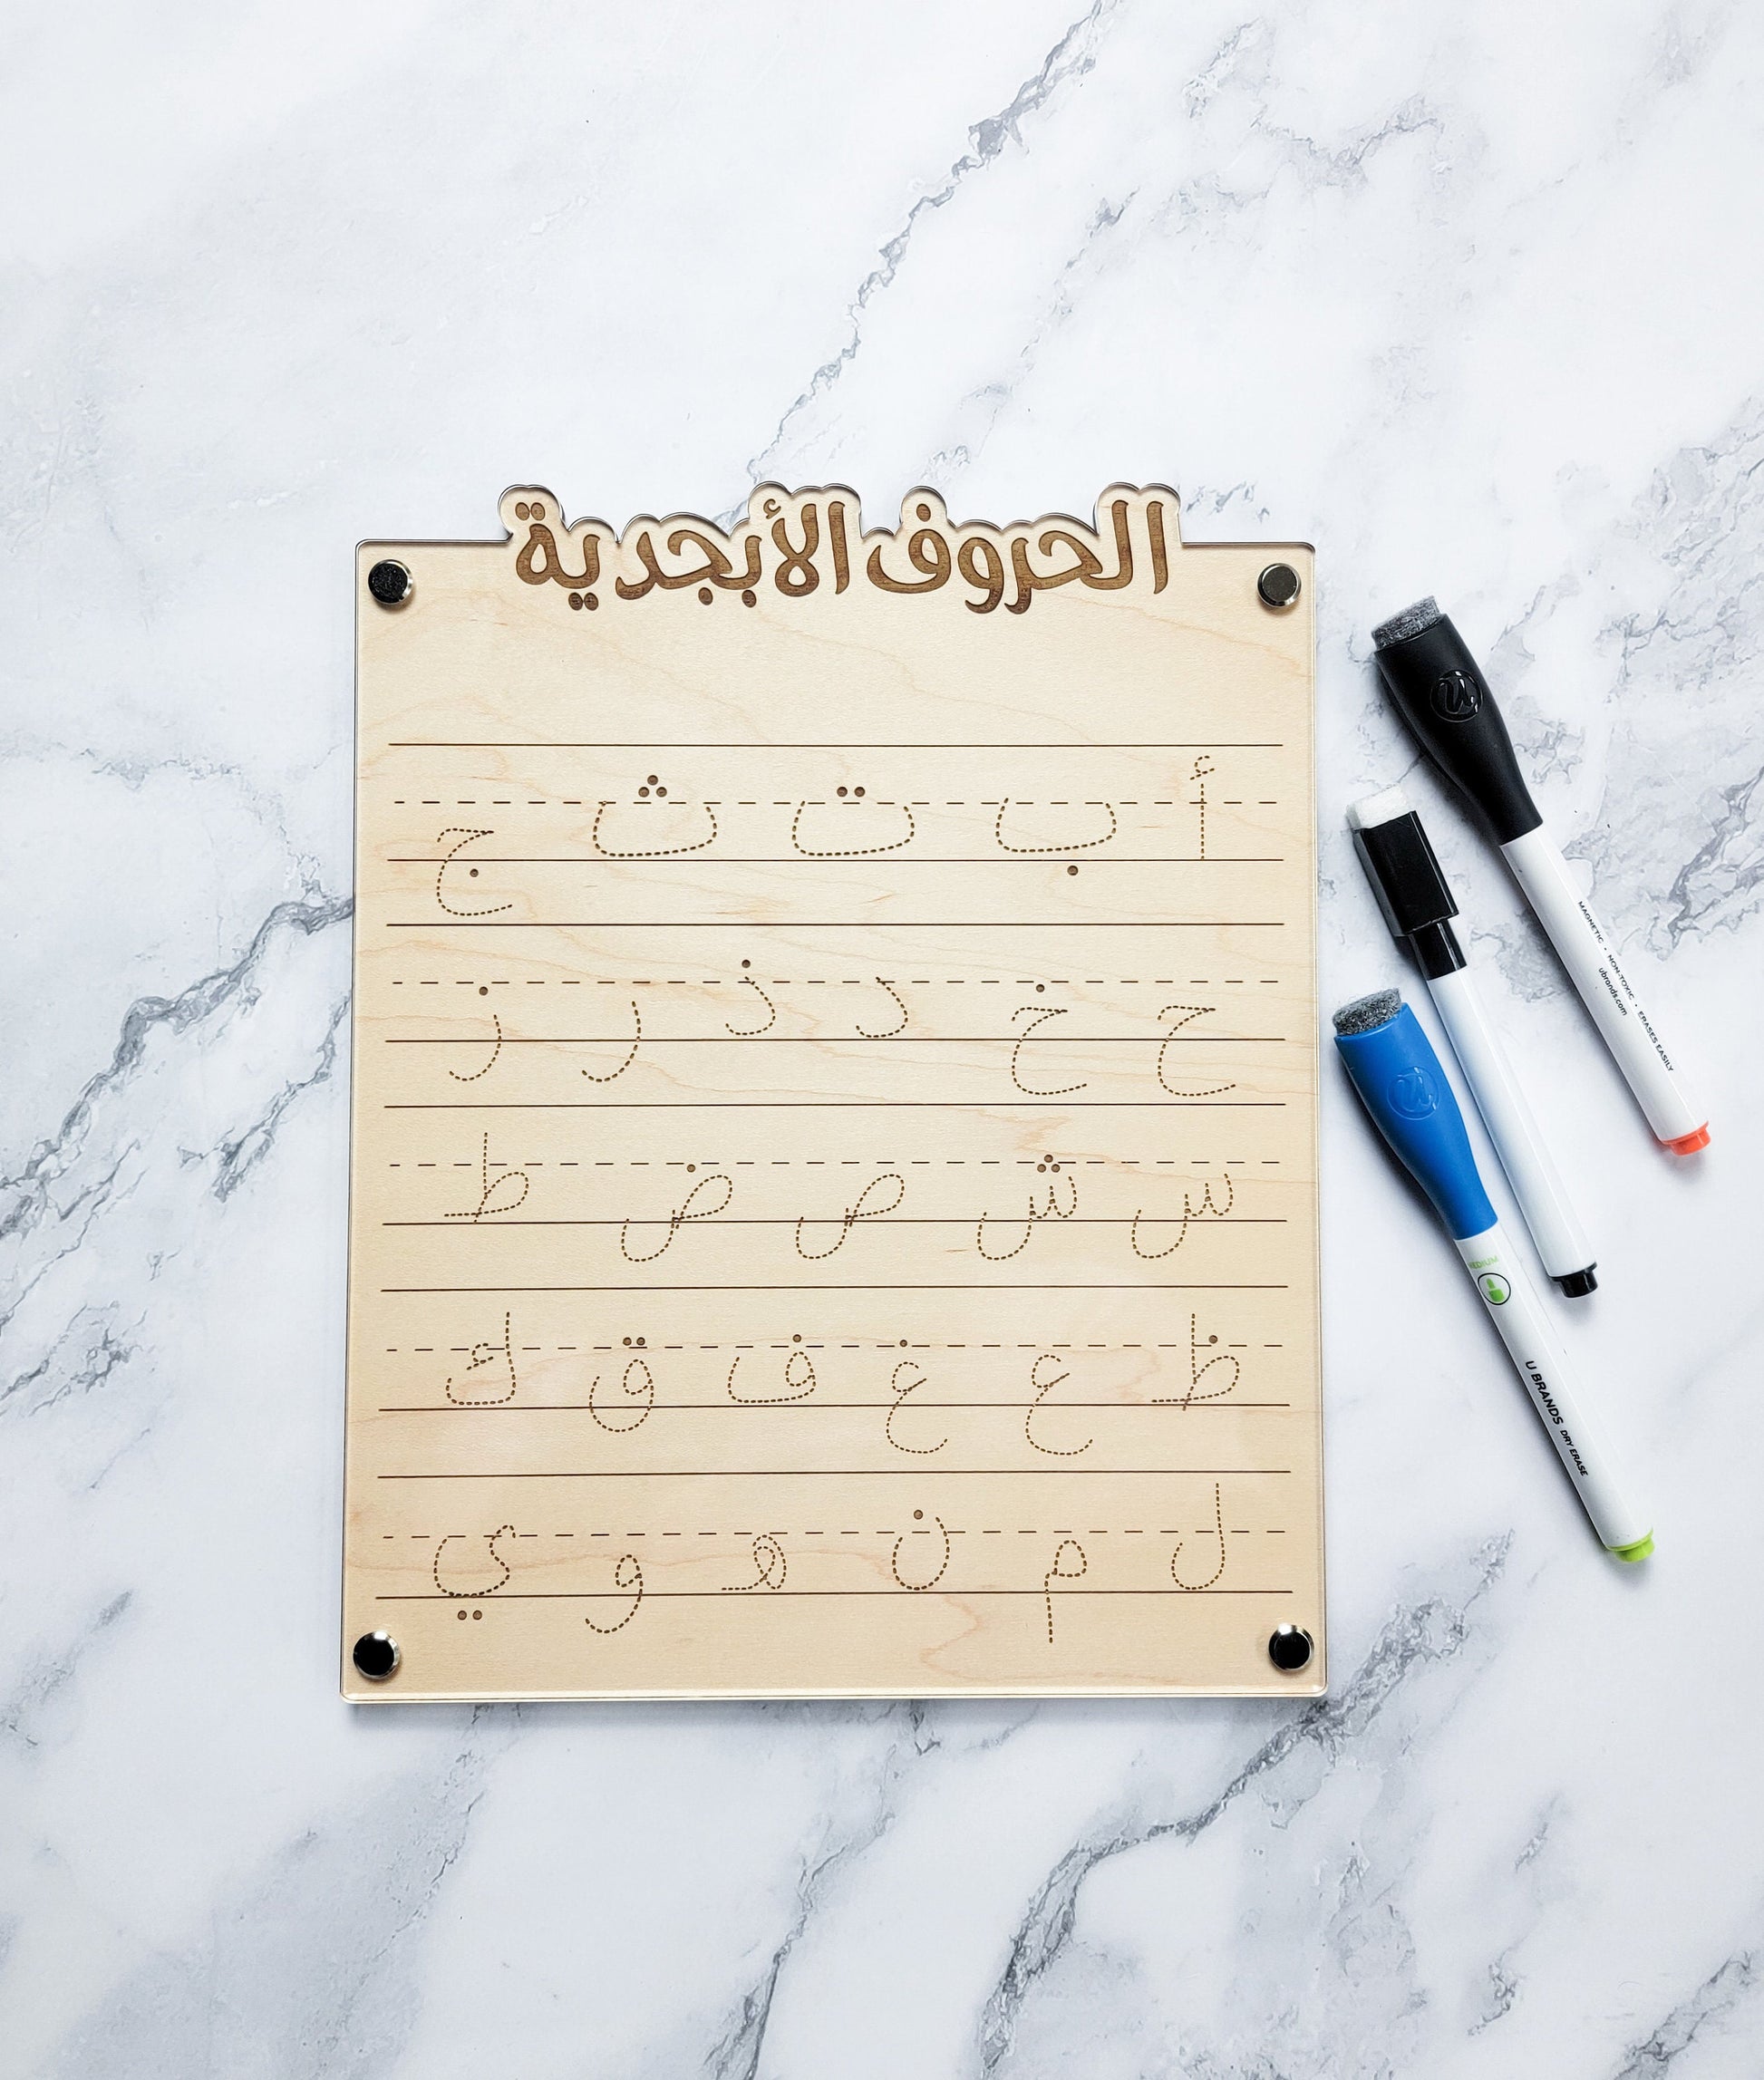 الحروف الأبجدية
أ ب ت ث ج
ح خ د ذ ر ز
س ش ص ض ط
ظ ع غ ف ق ك
ل م ن ه و ي
MAGNETIC • NON-TOXIC • ERASES EASILY
ubrands.com
MEDIUM
U BRANDS DRY ERASE